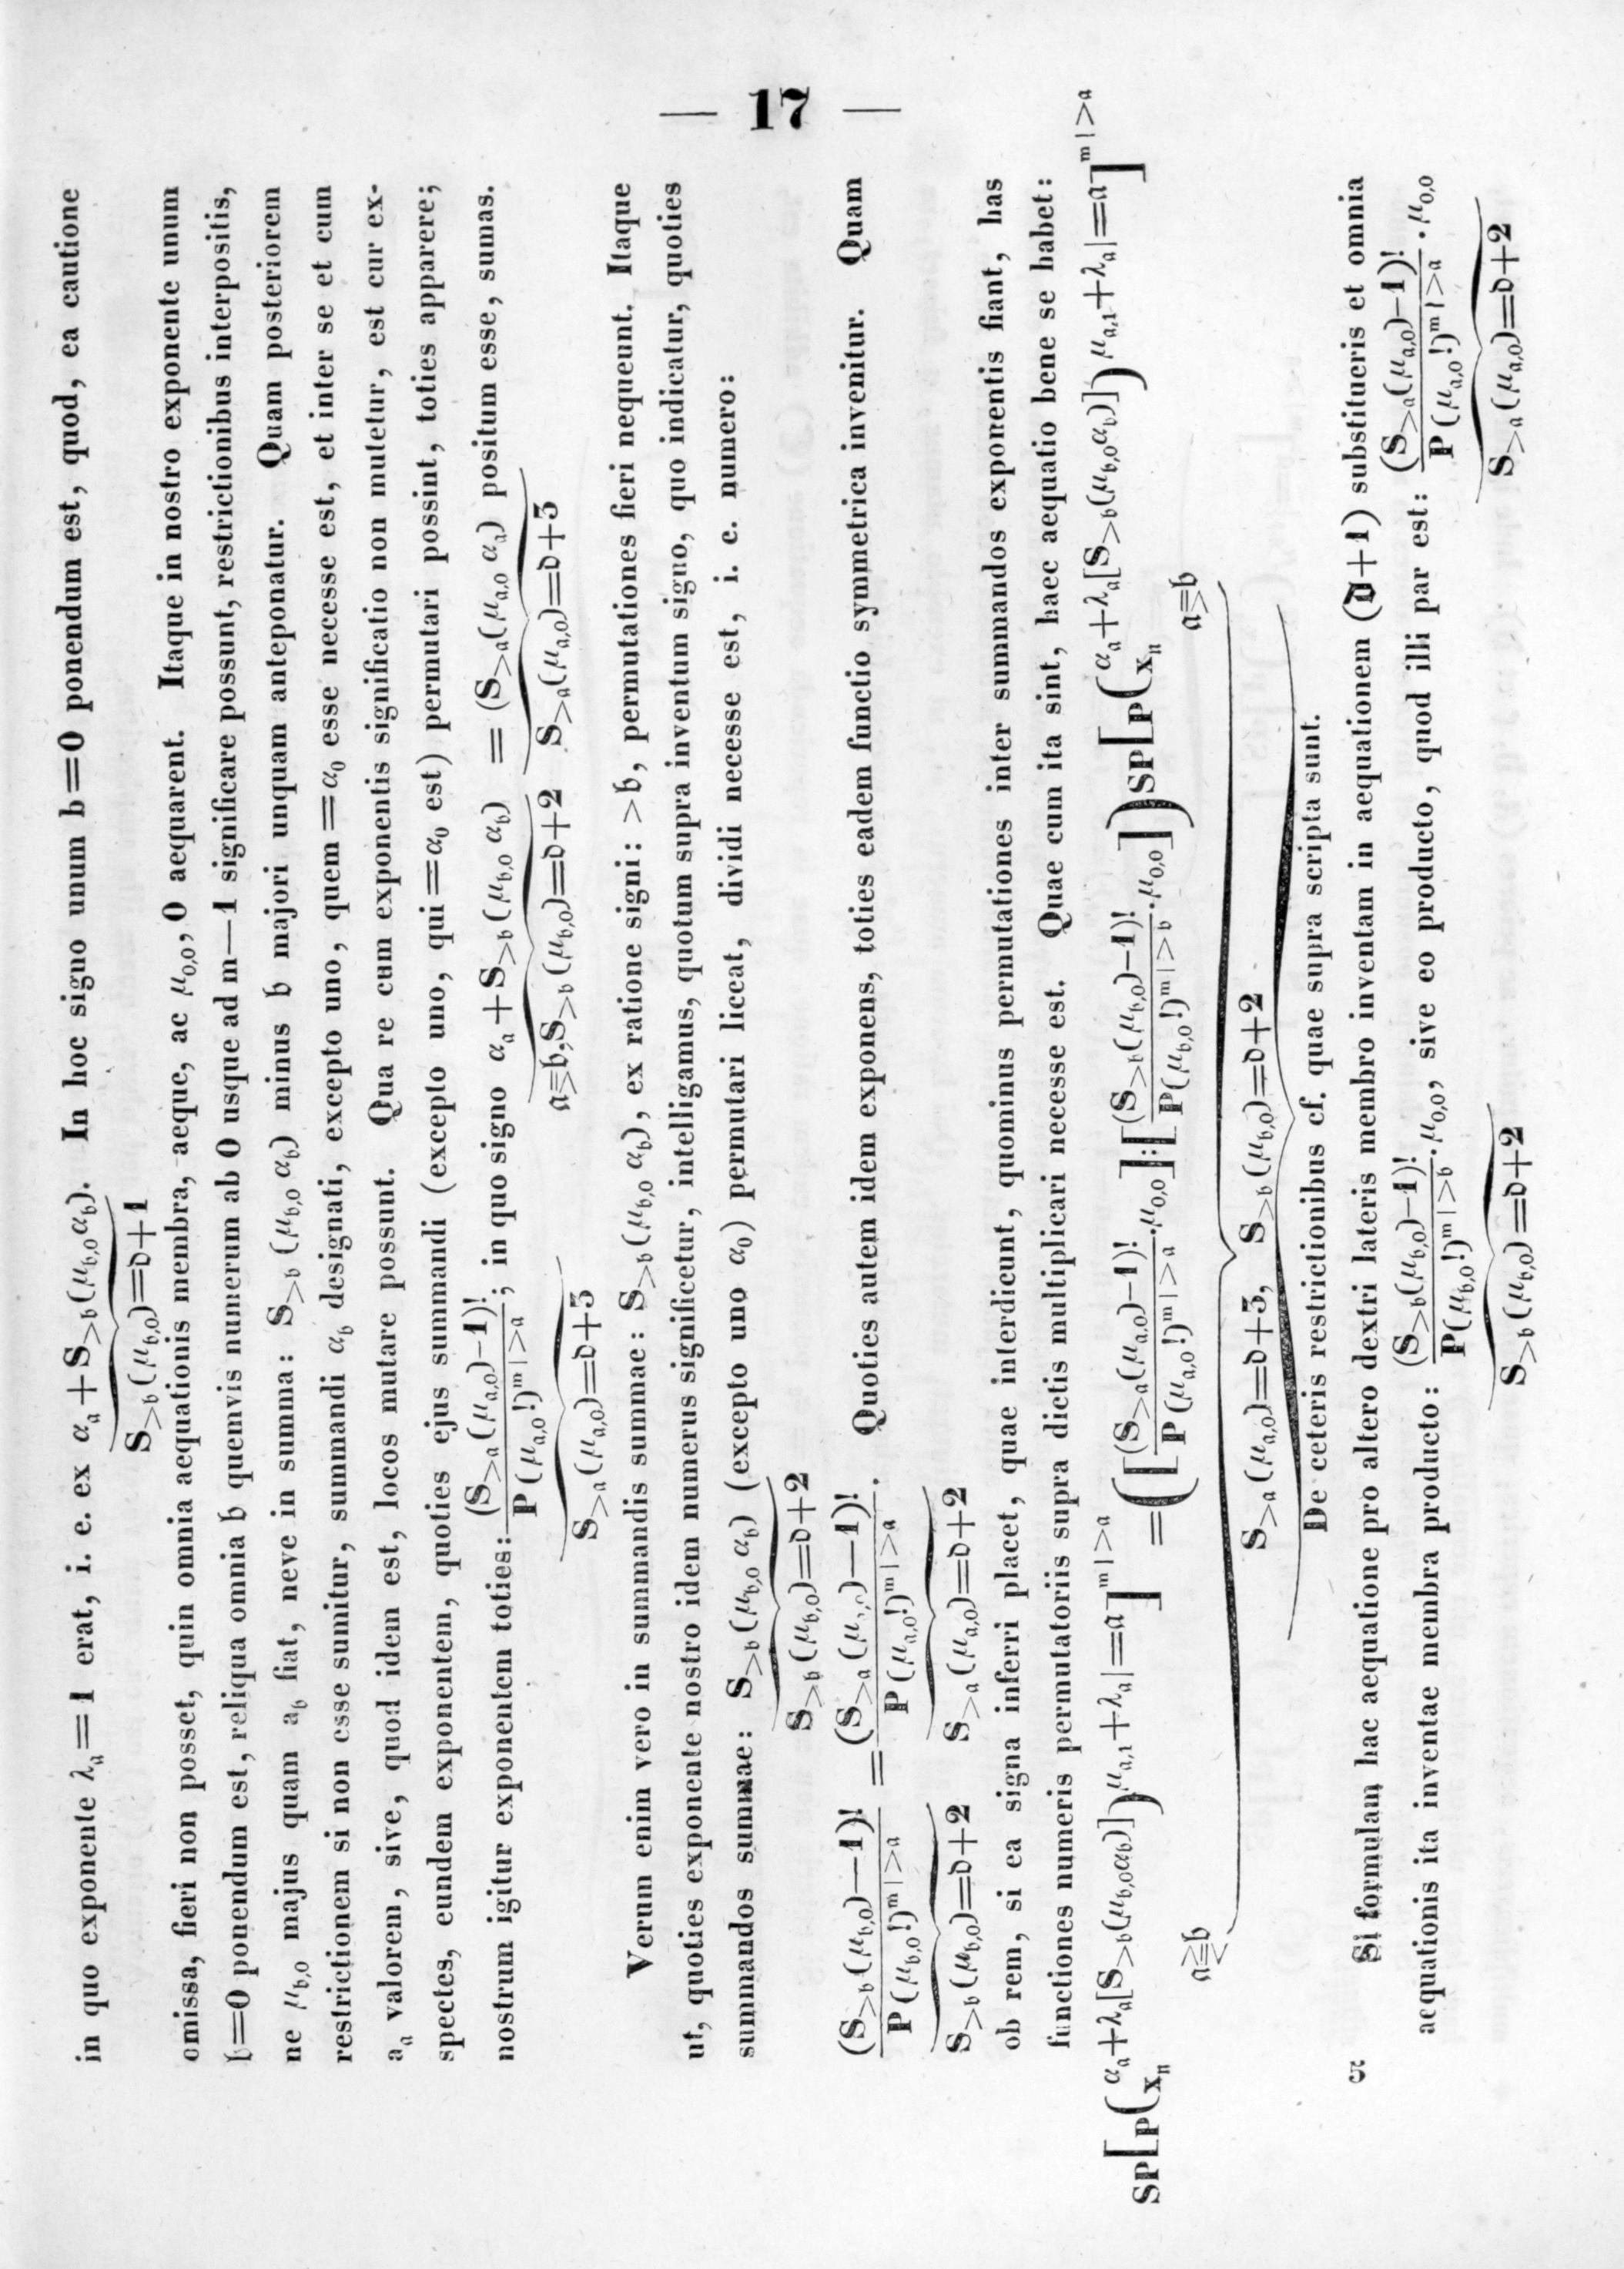 — 17 —
in quo exponente λₐ=1 erat, i. e. ex αₐ+S>𝔟(μ𝔟,0α𝔟). In hoc signo unum b=0 ponendum est, quod, ea cautione
S>𝔟(μ𝔟,0)=𝔡+1
omissa, fieri non posset, quin omnia aequationis membra, aeque, ac μ0,0, 0 aequarent. Itaque in nostro exponente unum
𝔟=0 ponendum est, reliqua omnia 𝔟 quemvis numerum ab 0 usque ad m—1 significare possunt, restrictionibus interpositis,
ne μ𝔟,0 majus quam a𝔟 fiat, neve in summa: S>𝔟(μ𝔟,0 α𝔟) minus 𝔟 majori unquam anteponatur. Quam posteriorem
restrictionem si non esse sumitur, summandi α𝔟 designati, excepto uno, quem =α0 esse necesse est, et inter se et cum
a𝔞 valorem, sive, quod idem est, locos mutare possunt. Qua re cum exponentis significatio non mutetur, est cur ex-
spectes, eundem exponentem, quoties ejus summandi (excepto uno, qui =α0 est) permutari possint, toties apparere;
nostrum igitur exponentem toties: (S>𝔞(μ𝔞,0)−1)! / P(μ𝔞,0!)ᵐ|>𝔞 ; in quo signo α𝔞+S>𝔟(μ𝔟,0 α𝔟) = (S>𝔞(μ𝔞,0 α𝔞) positum esse, sumas.
S>𝔞(μ𝔞,0)=𝔡+3 𝔞≧𝔟, S>𝔟(μ𝔟,0)=𝔡+2 S>𝔞(μ𝔞,0)=𝔡+3
Verum enim vero in summandis summae: S>𝔟(μ𝔟,0 α𝔟), ex ratione signi: >𝔟, permutationes fieri nequeunt. Itaque
ut, quoties exponente nostro idem numerus significetur, intelligamus, quotum supra inventum signo, quo indicatur, quoties
summandos summae: S>𝔟(μ𝔟,0 α𝔟) (excepto uno α0) permutari liceat, dividi necesse est, i. e. numero:
S>𝔟(μ𝔟,0)=𝔡+2
(S>𝔟(μ𝔟,0)—1)! / P(μ𝔟,0!)ᵐ|>𝔞 = (S>𝔞(μ𝔞,0)—1)! / P(μ𝔞,0!)ᵐ|>𝔞 . Quoties autem idem exponens, toties eadem functio symmetrica invenitur. Quam
S>𝔟(μ𝔟,0)=𝔡+2 S>𝔞(μ𝔞,0)=𝔡+2
ob rem, si ea signa inferri placet, quae interdicunt, quominus permutationes inter summandos exponentis fiant, has
functiones numeris permutatoriis supra dictis multiplicari necesse est. Quae cum ita sint, haec aequatio bene se habet:
SP[P(xₙ^α𝔞+λ𝔞[S>𝔟(μ𝔟,0α𝔟)])μ𝔞,1+λ𝔞|=𝔞]ᵐ|>𝔞 = ([(S>𝔞(μ𝔞,0)—1)! / P(μ𝔞,0!)ᵐ|>𝔞 .μ0,0]:[(S>𝔟(μ𝔟,0)—1)! / P(μ𝔟,0!)ᵐ|>𝔟 .μ0,0])SP[P(xₙ^α𝔞+λ𝔞[S>𝔟(μ𝔟,0α𝔟)])μ𝔞,1+λ𝔞|=𝔞]ᵐ|>𝔞
𝔞⪌𝔟 𝔞≧𝔟
S>𝔞(μ𝔞,0)=𝔡+3, S>𝔟(μ𝔟,0)=𝔡+2
De ceteris restrictionibus cf. quae supra scripta sunt.
Si formulam hac aequatione pro altero dextri lateris membro inventam in aequationem (𝔄+1) substitueris et omnia
aequationis ita inventae membra producto: (S>𝔟(μ𝔟,0)—1)! / P(μ𝔟,0!)ᵐ|>𝔟 .μ0,0, sive eo producto, quod illi par est: (S>𝔞(μ𝔞,0)—1)! / P(μ𝔞,0!)ᵐ|>𝔞 .μ0,0
S>𝔟(μ𝔟,0)=𝔡+2 S>𝔞(μ𝔞,0)=𝔡+2
5